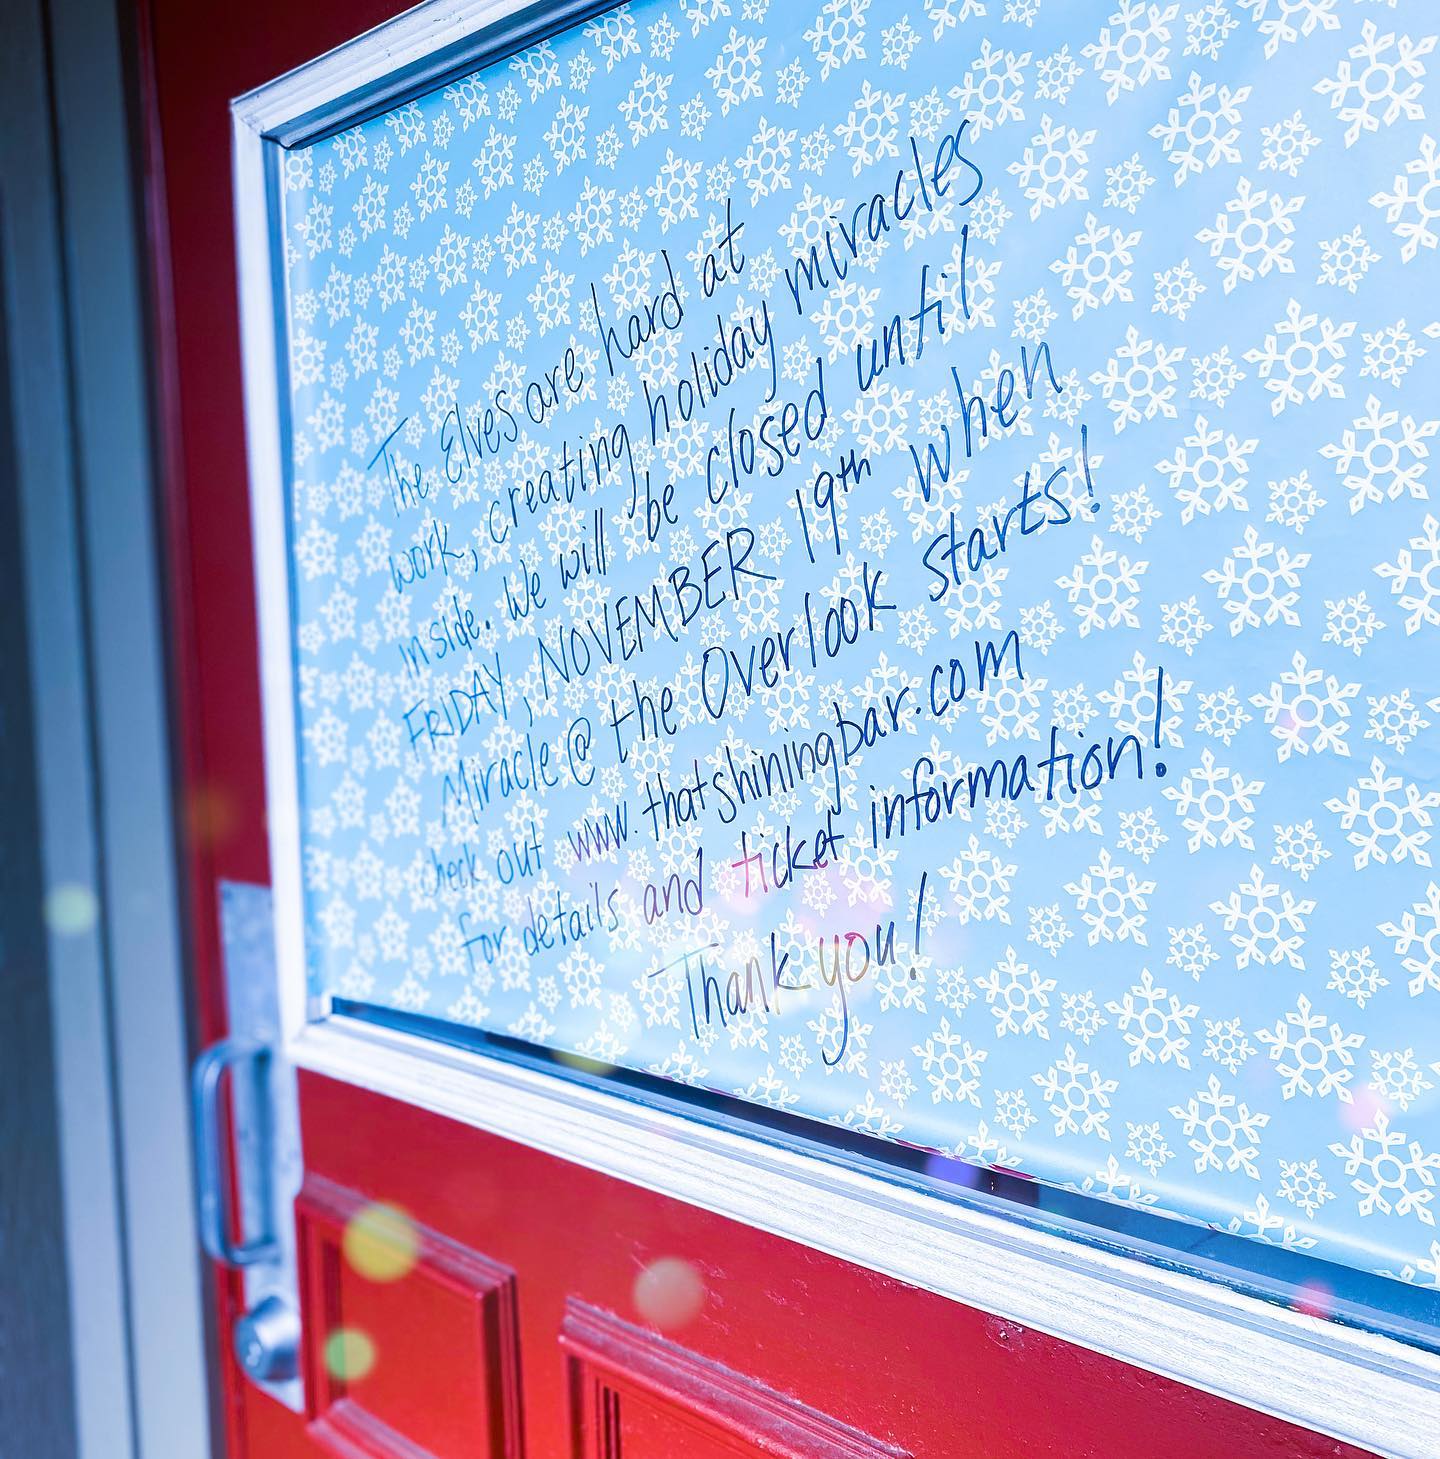 The Elves are hard at
work, creating holiday miracles
inside. We will be closed until
FRIDAY, NOVEMBER 19th when
Miracle @ the Overlook starts!
check out www.thatshiningbar.com
for details and ticket information!
Thank you!